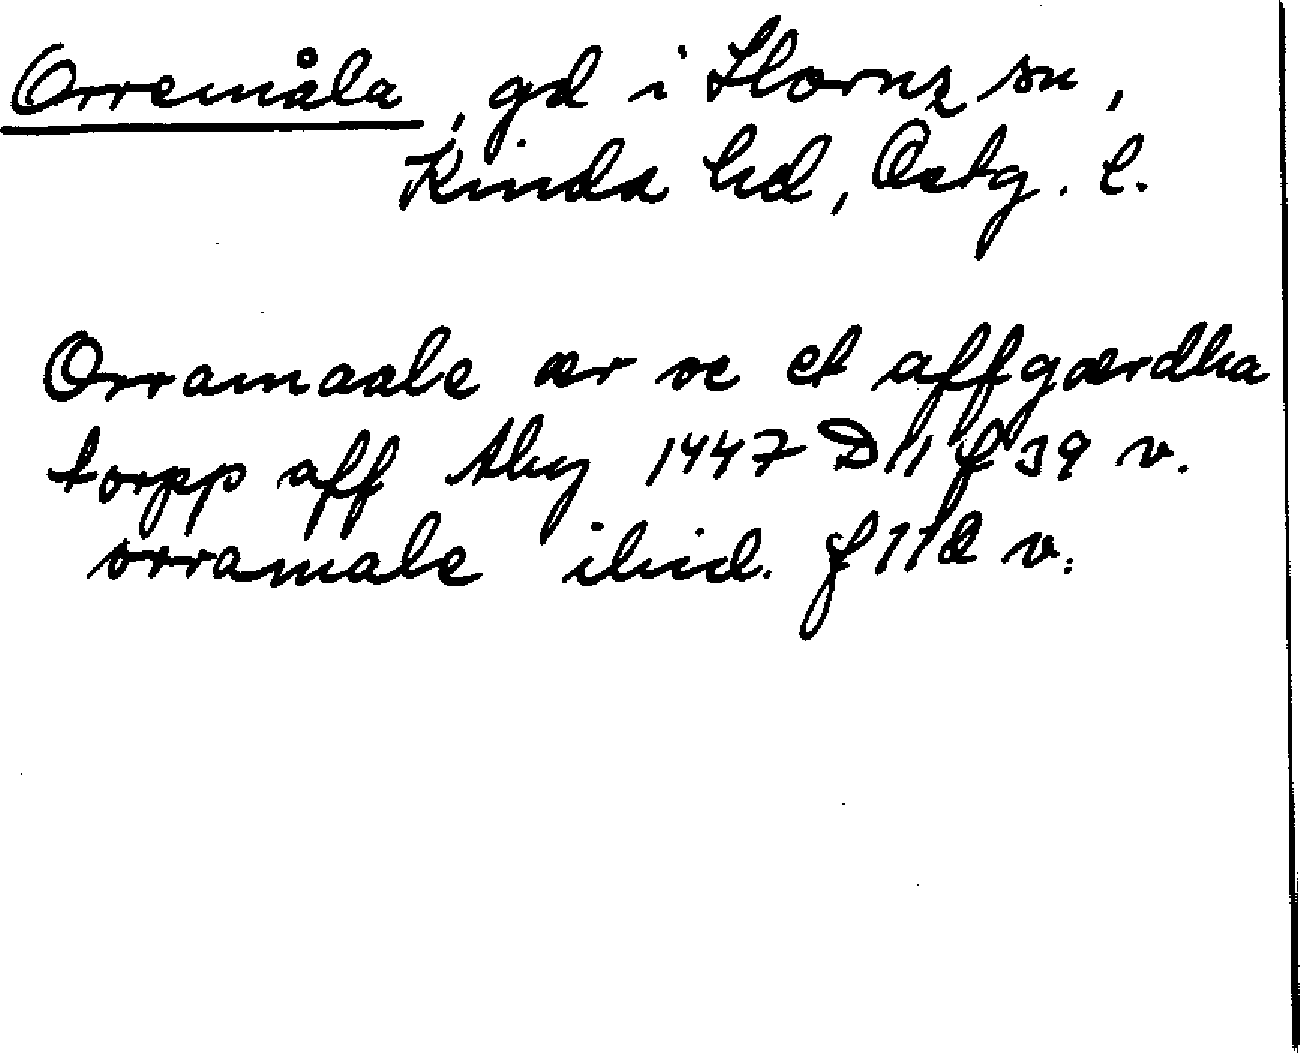 Orremåla, gd i Horns sn,
Kinda hd, Östg. l.
Orramaale ær oc et affgærdha
torpp aff Aby 1447 D 11 f 39 v.
orramale ibid. f 112 v.